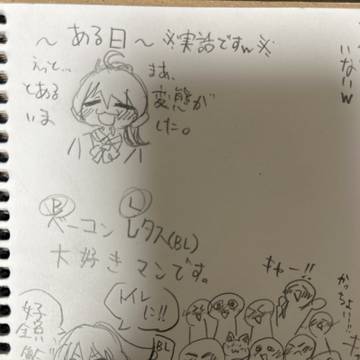 ～ある日～ ※実話ですw※
えっと…
とある
いま
まあ、
変態が
した。
いないw
ベーコン レタス(BL)
B
L
大好きマンです。
キャー!!
かっちょいい!!
トイレ
に!!
BL
好